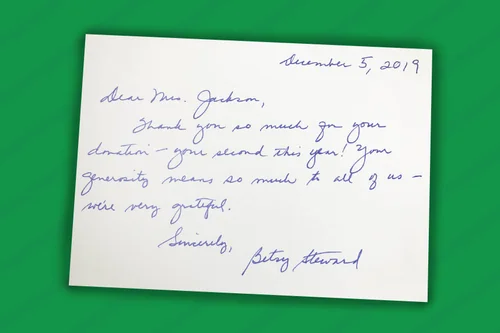 December 5, 2019
Dear Mrs. Jackson,
Thank you so much for your
donation – your second this year! Your
generosity means so much to all of us –
we're very grateful.
Sincerely,
Betsy Steward